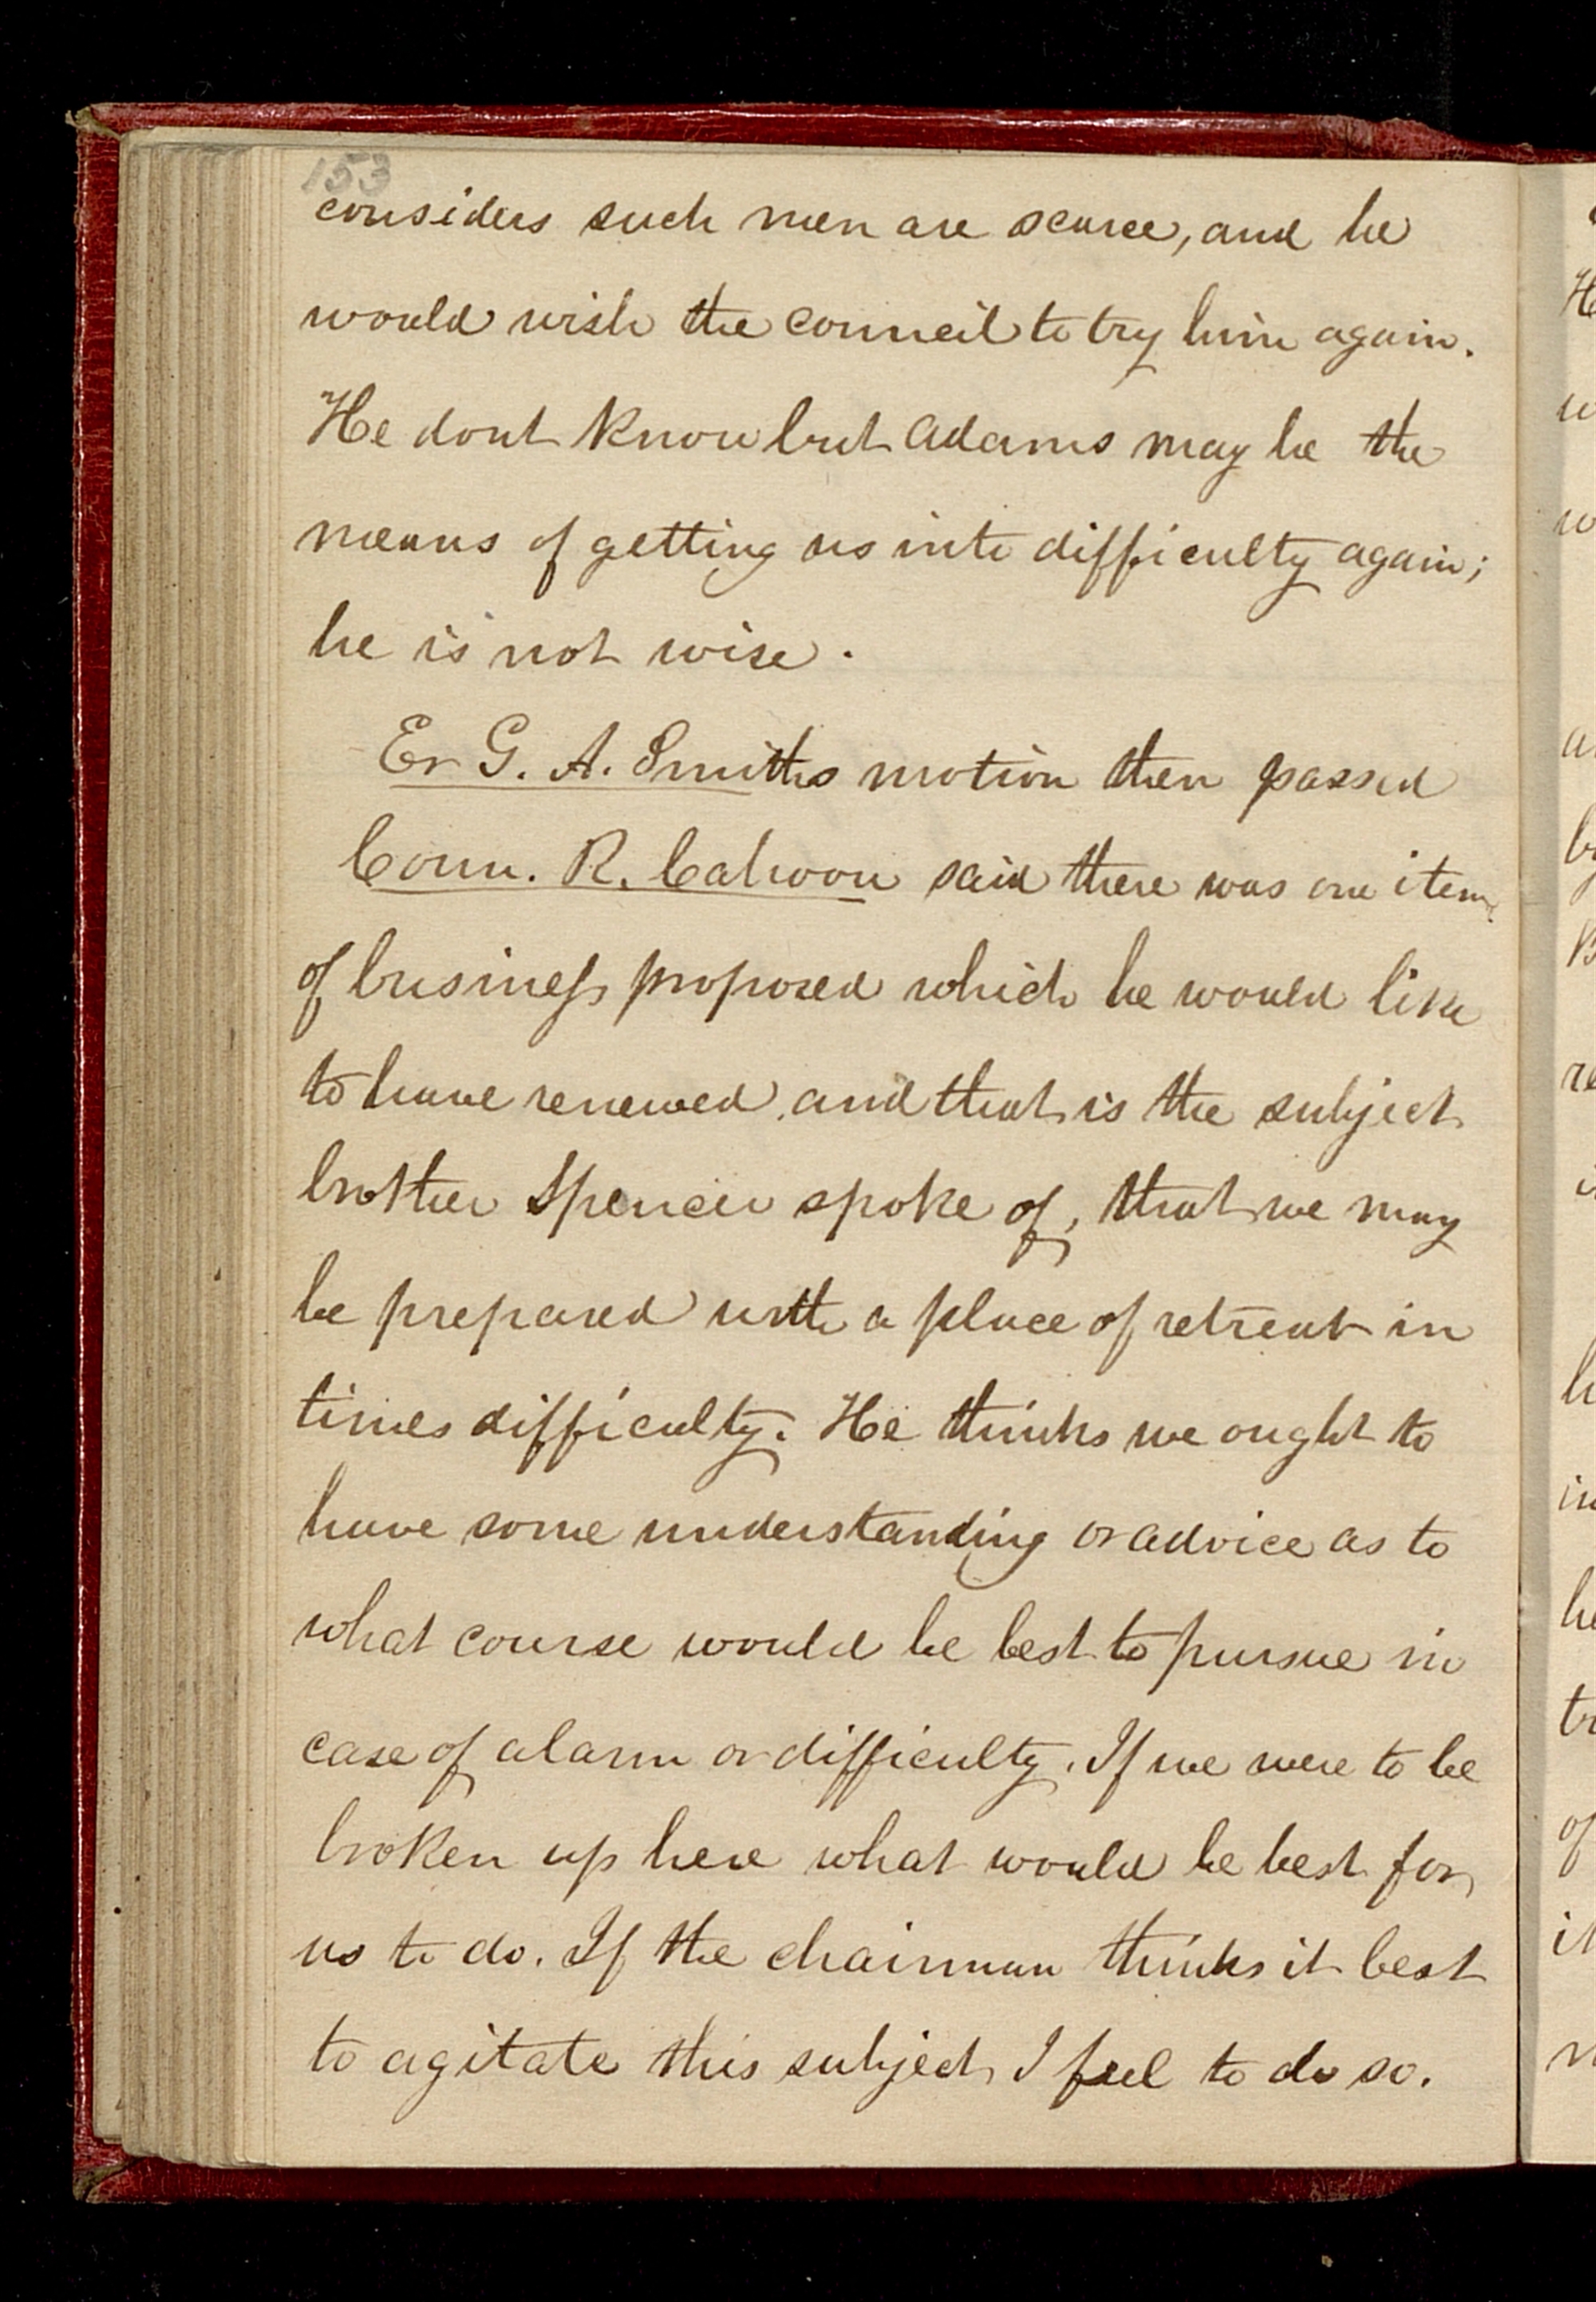 153
considers such men are scarce, and he
would wish the council to try him again.
He dont know but Adams may be the
means of getting us into difficulty again;
he is not wise.
Er G. A. Smiths motion then passed
Coun. R. Cahoon said there was one item
of business proposed which he would like
to have renewed, and that is the subject
brother Spencer spoke of, that we may
be prepared with a place of retreat in
times difficulty. He thinks we ought to
have some understanding or advice as to
what course would be best to pursue in
case of alarm or difficulty. If we were to be
broken up here what would be best for
us to do. If the chairman thinks it best
to agitate this subject I feel to do so.